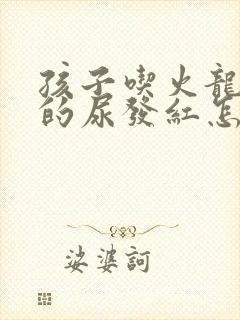 孩子喫火龍
的尿發紅怎
娑婆訶